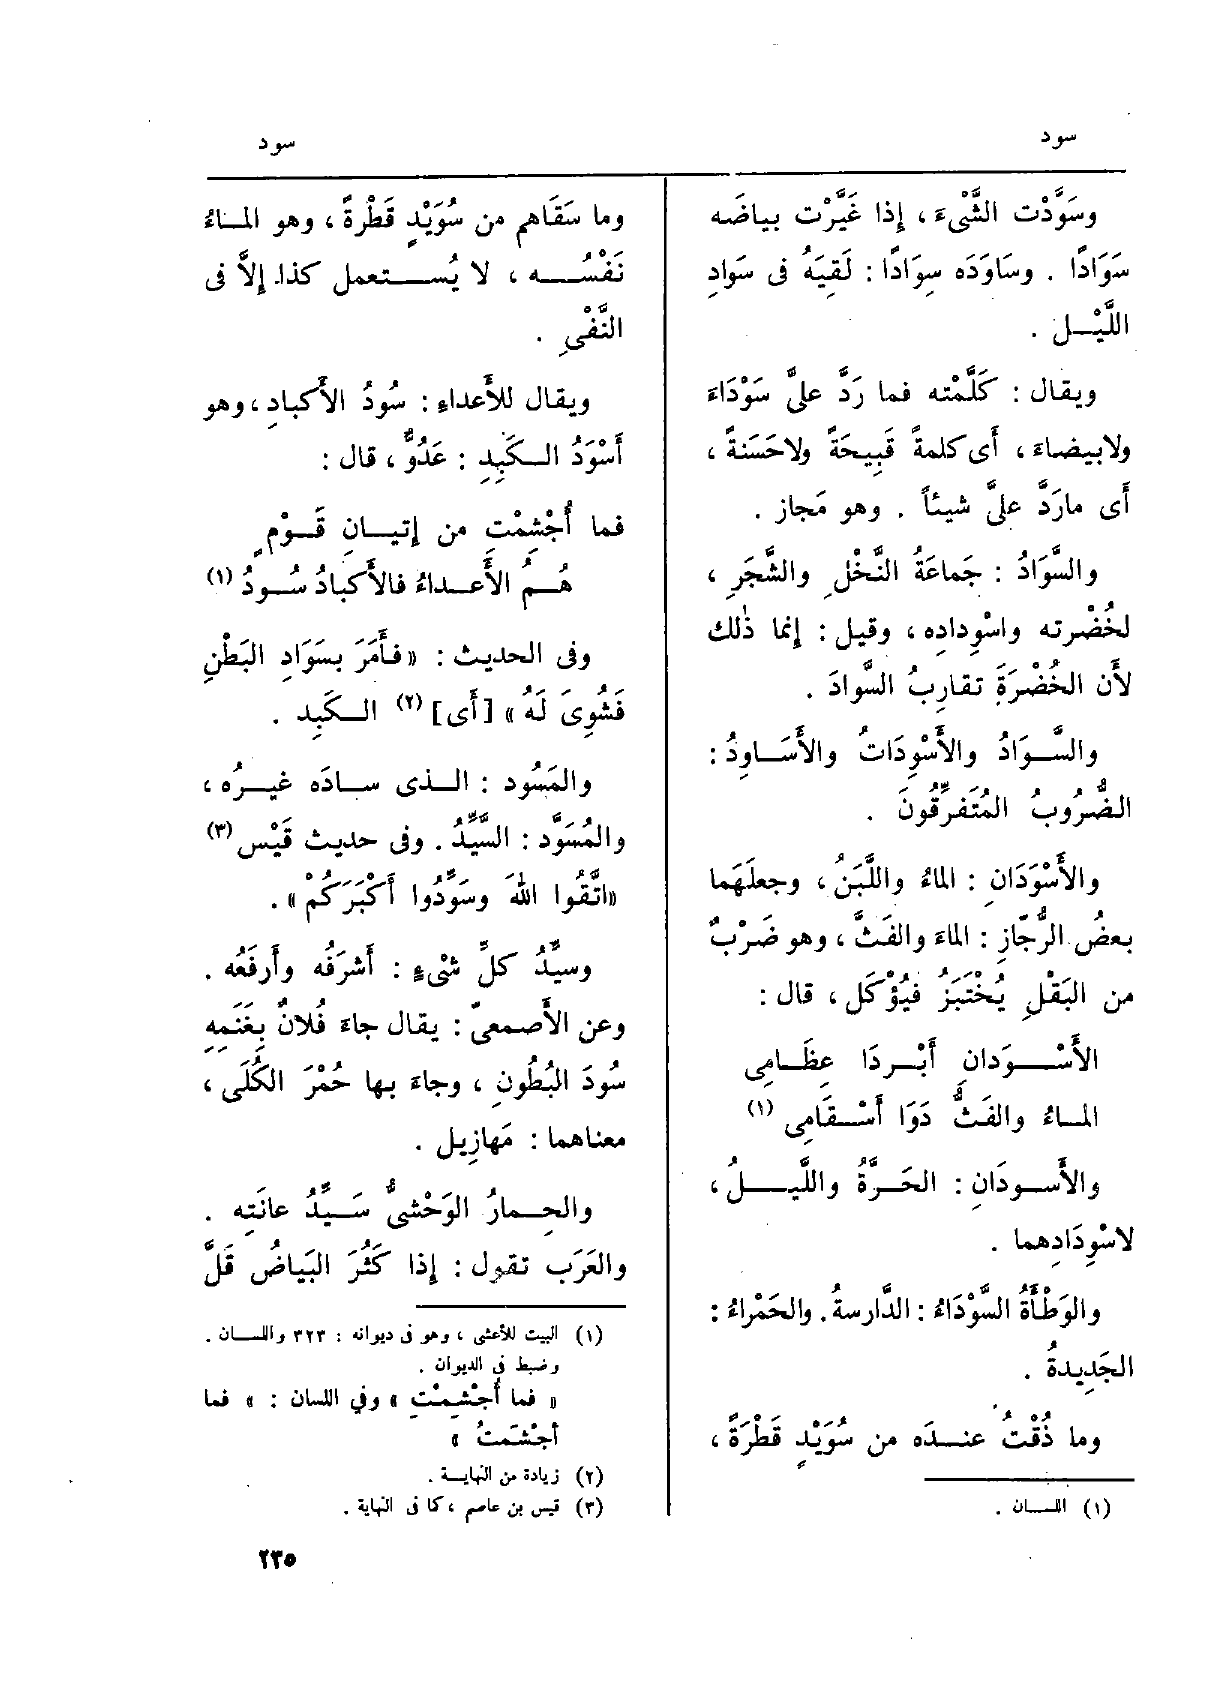 سود
وسَوَّدْت الشَّىْءَ ، إذا غَيَّرْت بياضَه
سَوَادًا . وسَاوَدَه سِوَادًا : لَقِيَهُ فى سَوادِ
اللَّيْـل .
ويقال : كَلَّمْته فما رَدَّ علىَّ سَوْدَاءَ
ولا بيضاءَ ، أَى كلمةً قَبِيحَةً ولا حَسَنةً ،
أَى مارَدَّ علىَّ شيئاً . وهو مَجاز .
والسَّوَادُ : جَماعَةُ النَّخْلِ والشَّجَرِ ،
لخُضْرته واسْوِدادِه ، وقيل : إنما ذٰلك
لأَن الخُضْرَةَ تقارِبُ السَّوادَ .
والسَّـوَادُ والأَسْوِدَاتُ والأَسَـاوِدُ :
الضُّرُوبُ المُتَفرِّقُونَ .
والأَسْوَدَانِ : الماءُ واللَّبَنُ ، وجعلَهَما
بعضُ الرُّجّازِ : الماءَ والفَثَّ ، وهو ضَرْبٌ
من البَقْلِ يُخْتبَزُ فيُؤْكَل ، قال :
الأَسْــوَدانِ أَبْـردَا عِظَـامِى
المـاءُ والفَثُّ دَوَا أَسْـقَامِى (١)
والأَسـودَانِ : الحَـرَّةُ واللَّيـلُ ،
لاسْوِدَادِهما .
والوَطْأَةُ السَّوْدَاءُ : الدَّارسةُ . والحَمْراءُ :
الجَدِيدةُ .
وما ذُقْتُ عنـدَه من سُوَيْدٍ قَطْرَةً ،
(١) اللسـان .
سود
وما سَقَاهم من سُوَيْدٍ قَطْرةً ، وهو المـاءُ
نَفْسُـه ، لا يُسـتعمل كذا إلاَّ فى
النَّفْىِ .
ويقال للأَعداءِ : سُودُ الأَكبادِ ، وهو
أَسْوَدُ الـكَبِدِ : عَدُوٌّ ، قال :
فما أُجْشِمْتِ من إتيـانِ قَـوْمٍ
هُـمُ الأَعـداءُ فالأَكبادُ سُـودُ (١)
وفى الحديث : «فأَمَرَ بسَوَادِ البَطْنِ
فَشُوِىَ لَهُ » [أَى] (٢) الـكَبِد .
والمَسُود : الـذى سـادَه غيـرُه ،
والمُسَوَّد : السَّيِّدُ . وفى حديث قَيْس (٣)
«اتَّقُوا اللّٰهَ وسَوِّدُوا أَكْبَرَكُمْ » .
وسيِّدُ كلِّ شىْءٍ : أَشرَفُه وأَرفَعُه .
وعن الأَصمعىّ : يقال جاءَ فُلانٌ بِغَنَمِهِ
سُودَ البُطُونِ ، وجاءَ بها حُمْرَ الكُلَى ،
معناهما : مَهازِيل .
والحِـمارُ الوَحْشىُّ سَـيِّدُ عانَتِه .
والعَرَب تقول : إذا كَثُرَ البَياضُ قَلَّ
(١) البيت للأعشى ، وهو فى ديوانه : ٣٢٣ واللسـان .
وضبط فى الديوان .
« فما أَجْشِمْتِ » وفي اللسان : « فما
أجْشَمَتُ »
(٢) زيادة من النهايـة .
(٣) قيس بن عاصم ، كما فى النهاية .
٢٣٥